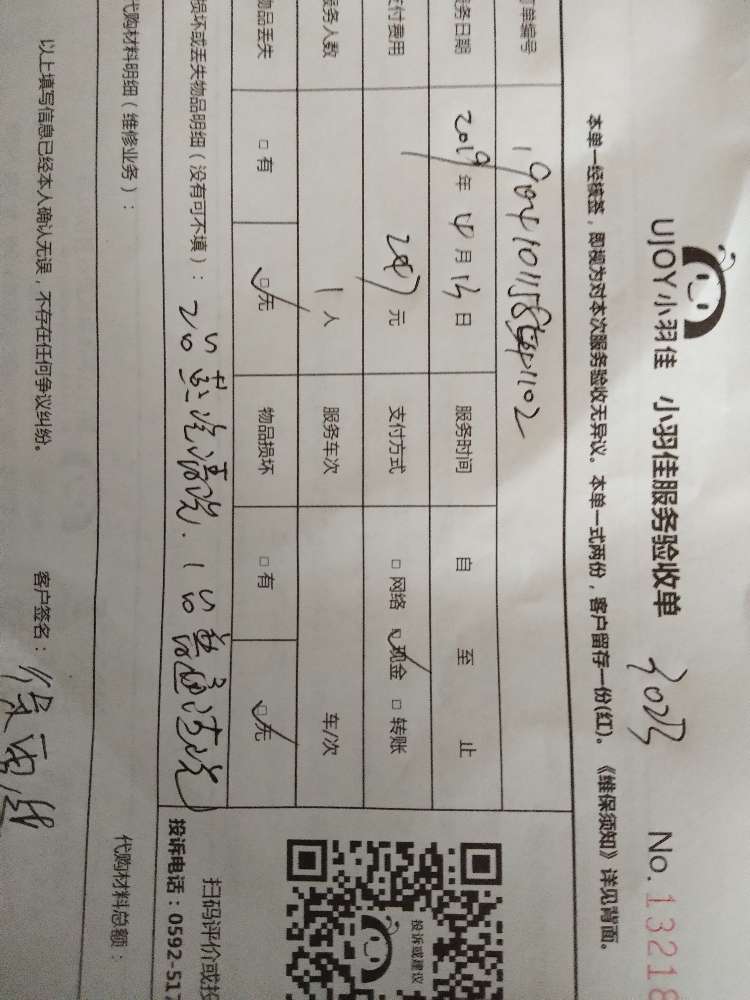 UJOY小羽佳 小羽佳服务验收单 No.13218
本单一经核签，即视为对本次服务验收无异议。本单一式两份，客户留存一份(红)。《维保须知》详见背面。
订单编号
服务日期 2019年4月13日 服务时间 自 至 止
支付费用 247元 支付方式 □网络 ☑现金 □转账
服务人数 1人 服务车次 车/次
物品丢失 □有 ☑无 物品损坏 □有 ☑无
损坏或丢失物品明细（没有可不填）：
代购材料明细（维修业务）：
代购材料总额：
以上填写信息已经本人确认无误，不存在任何争议纠纷。 客户签名：
投诉或建议
扫码评价或投
投诉电话：0592-517